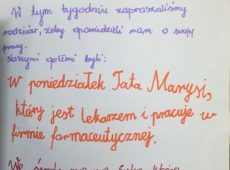 W tym tygodniu zaprosiliśmy
rodziców, żeby opowiedzieli nam o swojej
pracy.
Naszymi gośćmi byli:
W poniedziałek Tata Marysi,
który jest lekarzem i pracuje w
firmie farmaceutycznej.